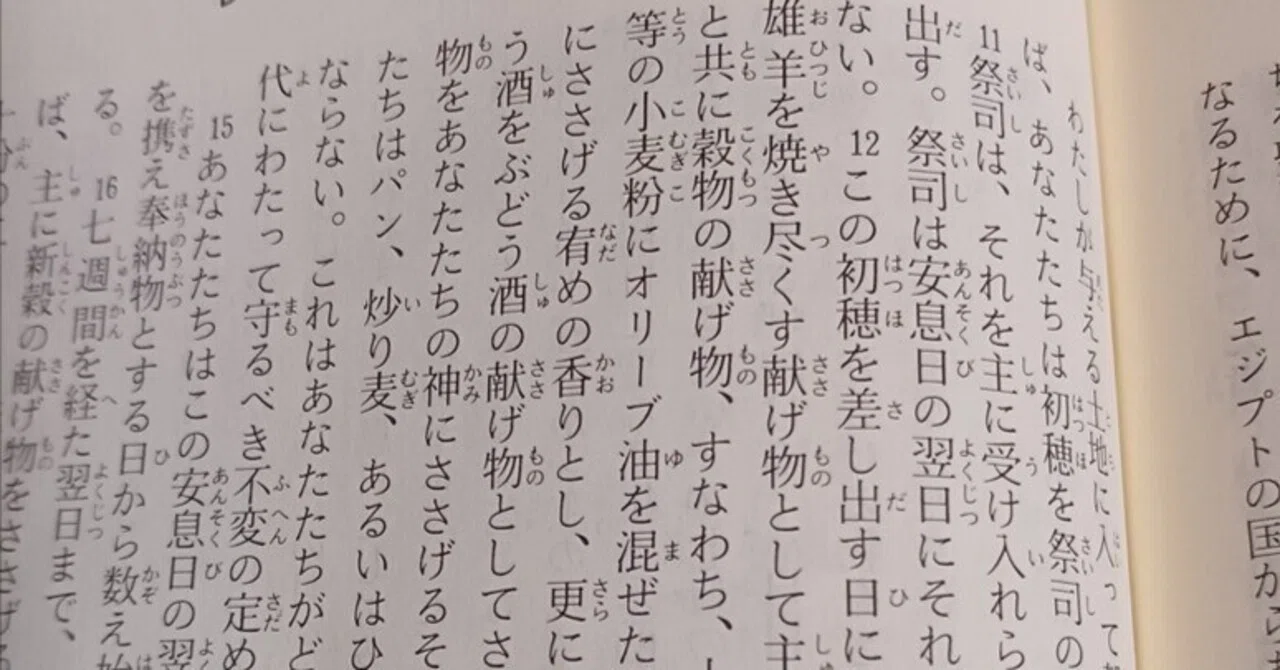 なるために、エジプトの国から
わたしが与える土地に入って
ば、あなたたちは初穂を祭司の
11祭司は、それを主に受け入れら
出す。祭司は安息日の翌日にそれ
ない。 12この初穂を差し出す日に
雄羊を焼き尽くす献げ物として主
と共に穀物の献げ物、すなわち、
等の小麦粉にオリーブ油を混ぜた
にささげる宥めの香りとし、更に
う酒をぶどう酒の献げ物としてさ
物をあなたたちの神にささげるそ
たちはパン、炒り麦、あるいはひ
ならない。これはあなたたちがど
代にわたって守るべき不変の定め
15あなたたちはこの安息日の翌
を携え奉納物とする日から数え始
る。 16七週間を経た翌日まで、
ば、主に新穀の献げ物をささげる